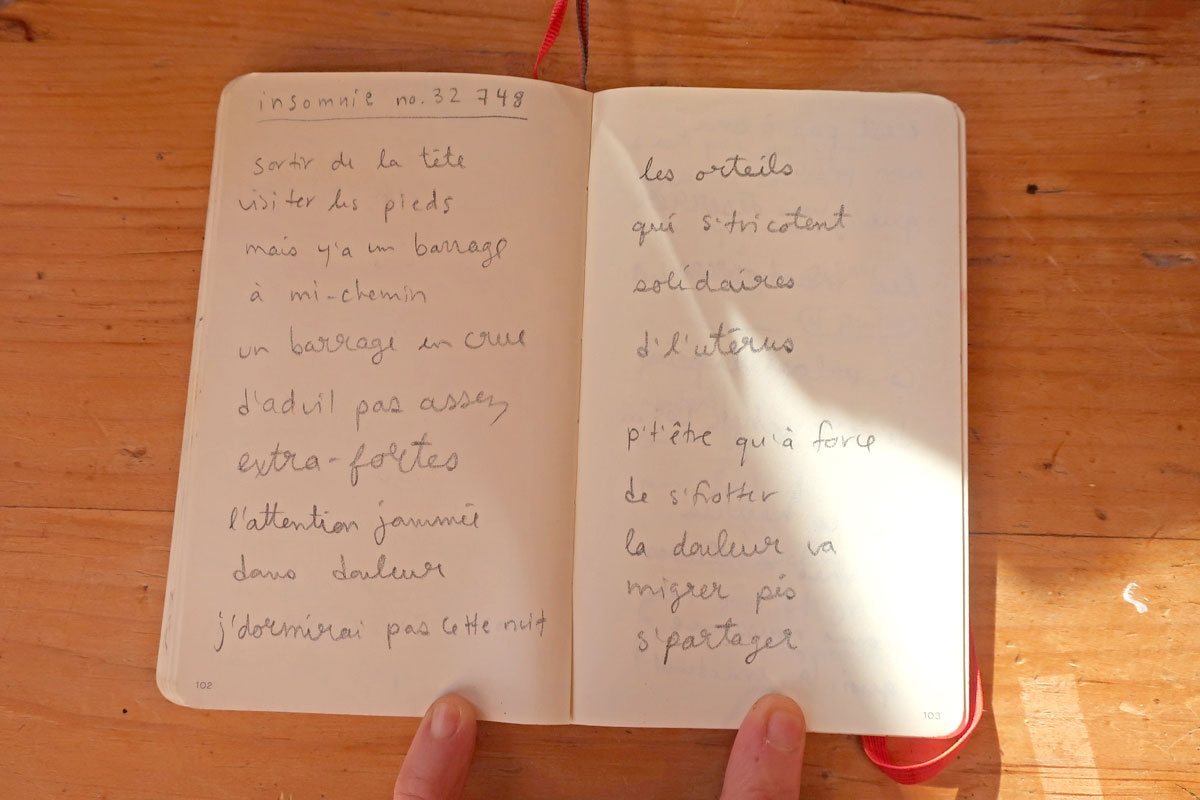 insomnie no. 32 748
sortir de la tête
visiter les pieds
mais y'a un barrage
à mi-chemin
un barrage en crue
d'advil pas assez
extra-fortes
l'attention jammée
dans douleur
j'dormirai pas cette nuit
102
les orteils
qui s'tricotent
solidaires
d'l'utérus
p't'être qu'à force
de s'frotter
la douleur va
migrer pis
s'partager
103